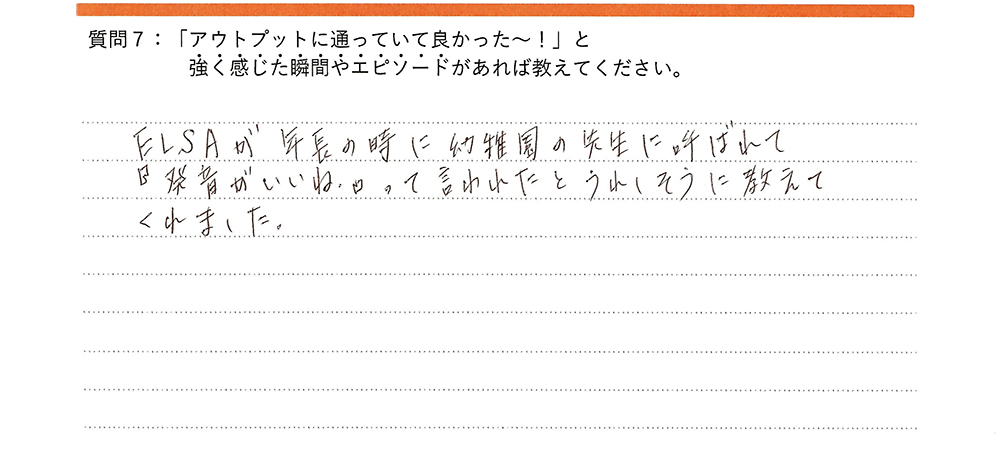 質問7：「アウトプットに通っていて良かった～！」と
強く感じた瞬間やエピソードがあれば教えてください。
ELSAが年長の時に幼稚園の先生に呼ばれて
『発音がいいね。』って言われたとうれしそうに教えて
くれました。